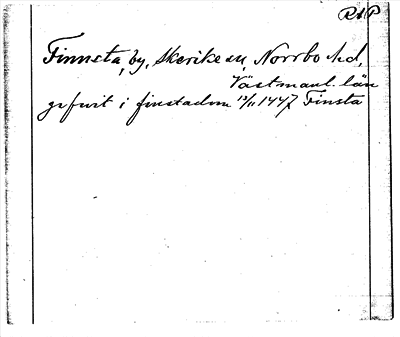 RAP
Finnsta, by, Skerike sn, Norrbo hd,
Västmanl. län
gifwit i finstadom 13/11 1447 Finsta